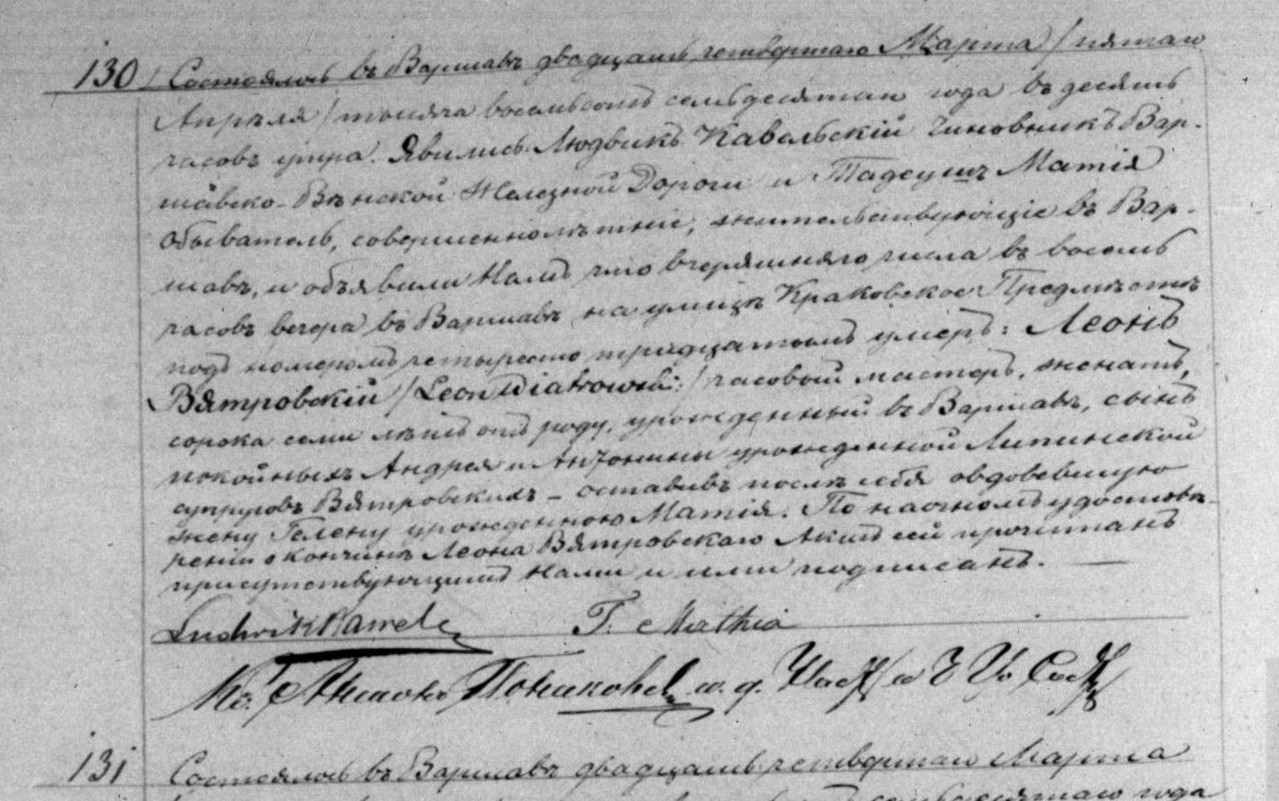 130 Состоялось въ Варшавѣ двадцать четвертаго Марта / пятаго
Апрѣля / тысяча восемьсотъ семьдесятаго года въ десять
часовъ утра. Явились Людвикъ Кавальскій чиновникъ Вар-
шавско-Вѣнской Железной Дороги и Тадеушъ Матія
обыватель, совершеннолѣтніе, жительствующіе въ Вар-
шавѣ, и объявили Намъ что вчерашняго числа въ восемь
часовъ вечера въ Варшавѣ на улицѣ Краковское Предмѣстѣ
подъ номеромъ четыреста тридцатымъ умеръ: Леонъ
Вятровскій / Leon Wiatrowski / часовой мастеръ, женатъ,
сорока семи лѣтъ отъ роду, урожденный въ Варшавѣ, сынъ
покойныхъ Андрея и Антонины урожденной Липинской
супруговъ Вятровскихъ – оставивъ послѣ себя овдовевшую
жену Гелену урожденною Матія. По наочномъ удостовѣ-
реніи о кончинѣ Леона Вятровскаго Актъ сей прочитанъ
присутствующимъ Нами и ими подписанъ. —
Ludwik T. Mathia
Кс.
131 Состоялось въ Варшавѣ двадцать четвертаго Марта
года